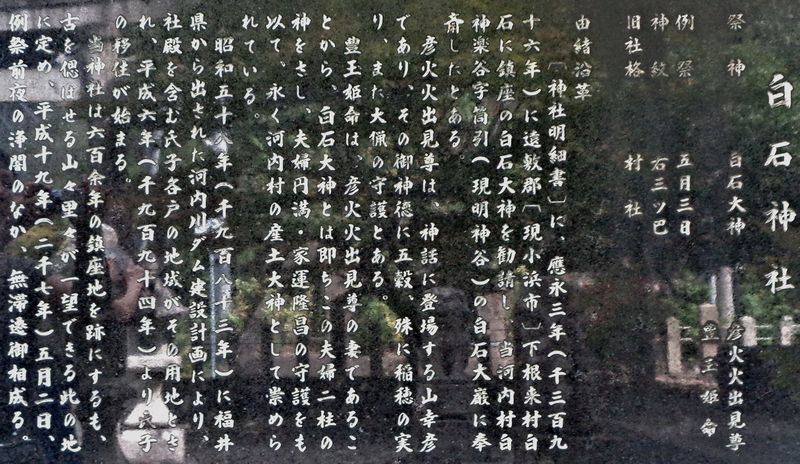 白石神社
祭神　白石大神　彦火火出見尊
豊玉姫命
例祭　五月三日
神紋　右三ツ巴
旧社格　村社
由緒沿革
〔神社明細書〕に、應永三年（千三百九
十六年）に遠敷郡〔現小浜市〕下根来村白
石に鎮座の白石大神を勧請し、当河内村白
神楽谷字筒引（現明神谷）の白石大巌に奉
斎したとある
彦火火出見尊は、神話に登場する山幸彦
であり、その御神徳に五穀、殊に稲穂の実
り、また大猟の守護とある。
豊玉姫命は、彦火火出見尊の妻であるこ
とから、白石大神とは即ちこの夫婦二柱の
神をさし、夫婦円満・家運隆昌の守護をも
以て、永く河内村の産土大神として崇めら
れている。
昭和五十八年（千九百八十三年）に福井
県から出された河内川ダム建設計画により、
社殿を含む氏子各戸の地域がその用地とさ
れ、平成六年（千九百九十四年）より氏子
の移住が始まる。
当神社は六百余年の鎮座地を跡にするも、
古を偲ばせる山々里々が一望できる此の地
に定め、平成十九年（二千七年）五月二日、
例祭前夜の浄闇のなか、無滞遷御相成る。